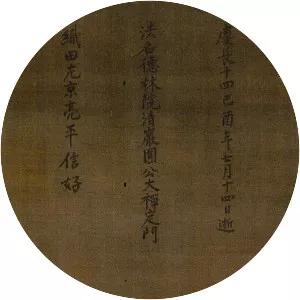 慶長十四己酉年七月十四日逝
法名德林院清巖圓公大禅定門
織田左京亮平信好